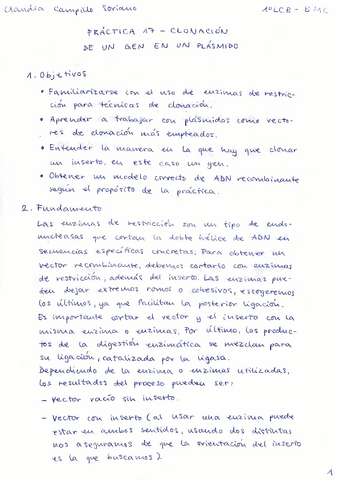 Claudia Campillo Soriano 1º LCB - BMC
PRÁCTICA 17 - CLONACIÓN
DE UN GEN EN UN PLÁSMIDO
1. Objetivos
• Familiarizarse con el uso de enzimas de restric-
ción para técnicas de clonación.
• Aprender a trabajar con plásmidos como vecto-
res de clonación más empleados.
• Entender la manera en la que hay que clonar
un inserto, en este caso un gen.
• Obtener un modelo correcto de ADN recombinante
según el propósito de la práctica.
2. Fundamento
Las enzimas de restricción son un tipo de endo-
nucleasas que cortan la doble hélice de ADN en
secuencias específicas concretas. Para obtener un
vector recombinante, debemos cortarlo con enzimas
de restricción, además del inserto. Las enzimas pue-
den dejar extremos romos o cohesivos, escogeremos
los últimos, ya que facilitan la posterior ligación.
Es importante cortar el vector y el inserto con la
misma enzima o enzimas. Por último, los produc-
tos de la digestión enzimática se mezclan para
su ligación, catalizada por la ligasa.
Dependiendo de la enzima o enzimas utilizadas,
los resultados del proceso pueden ser:
- Vector vacío sin inserto.
- Vector con inserto (al usar una enzima puede
estar en ambos sentidos, usando dos distintas
nos aseguramos de que la orientación del inserto
es la que buscamos).
1